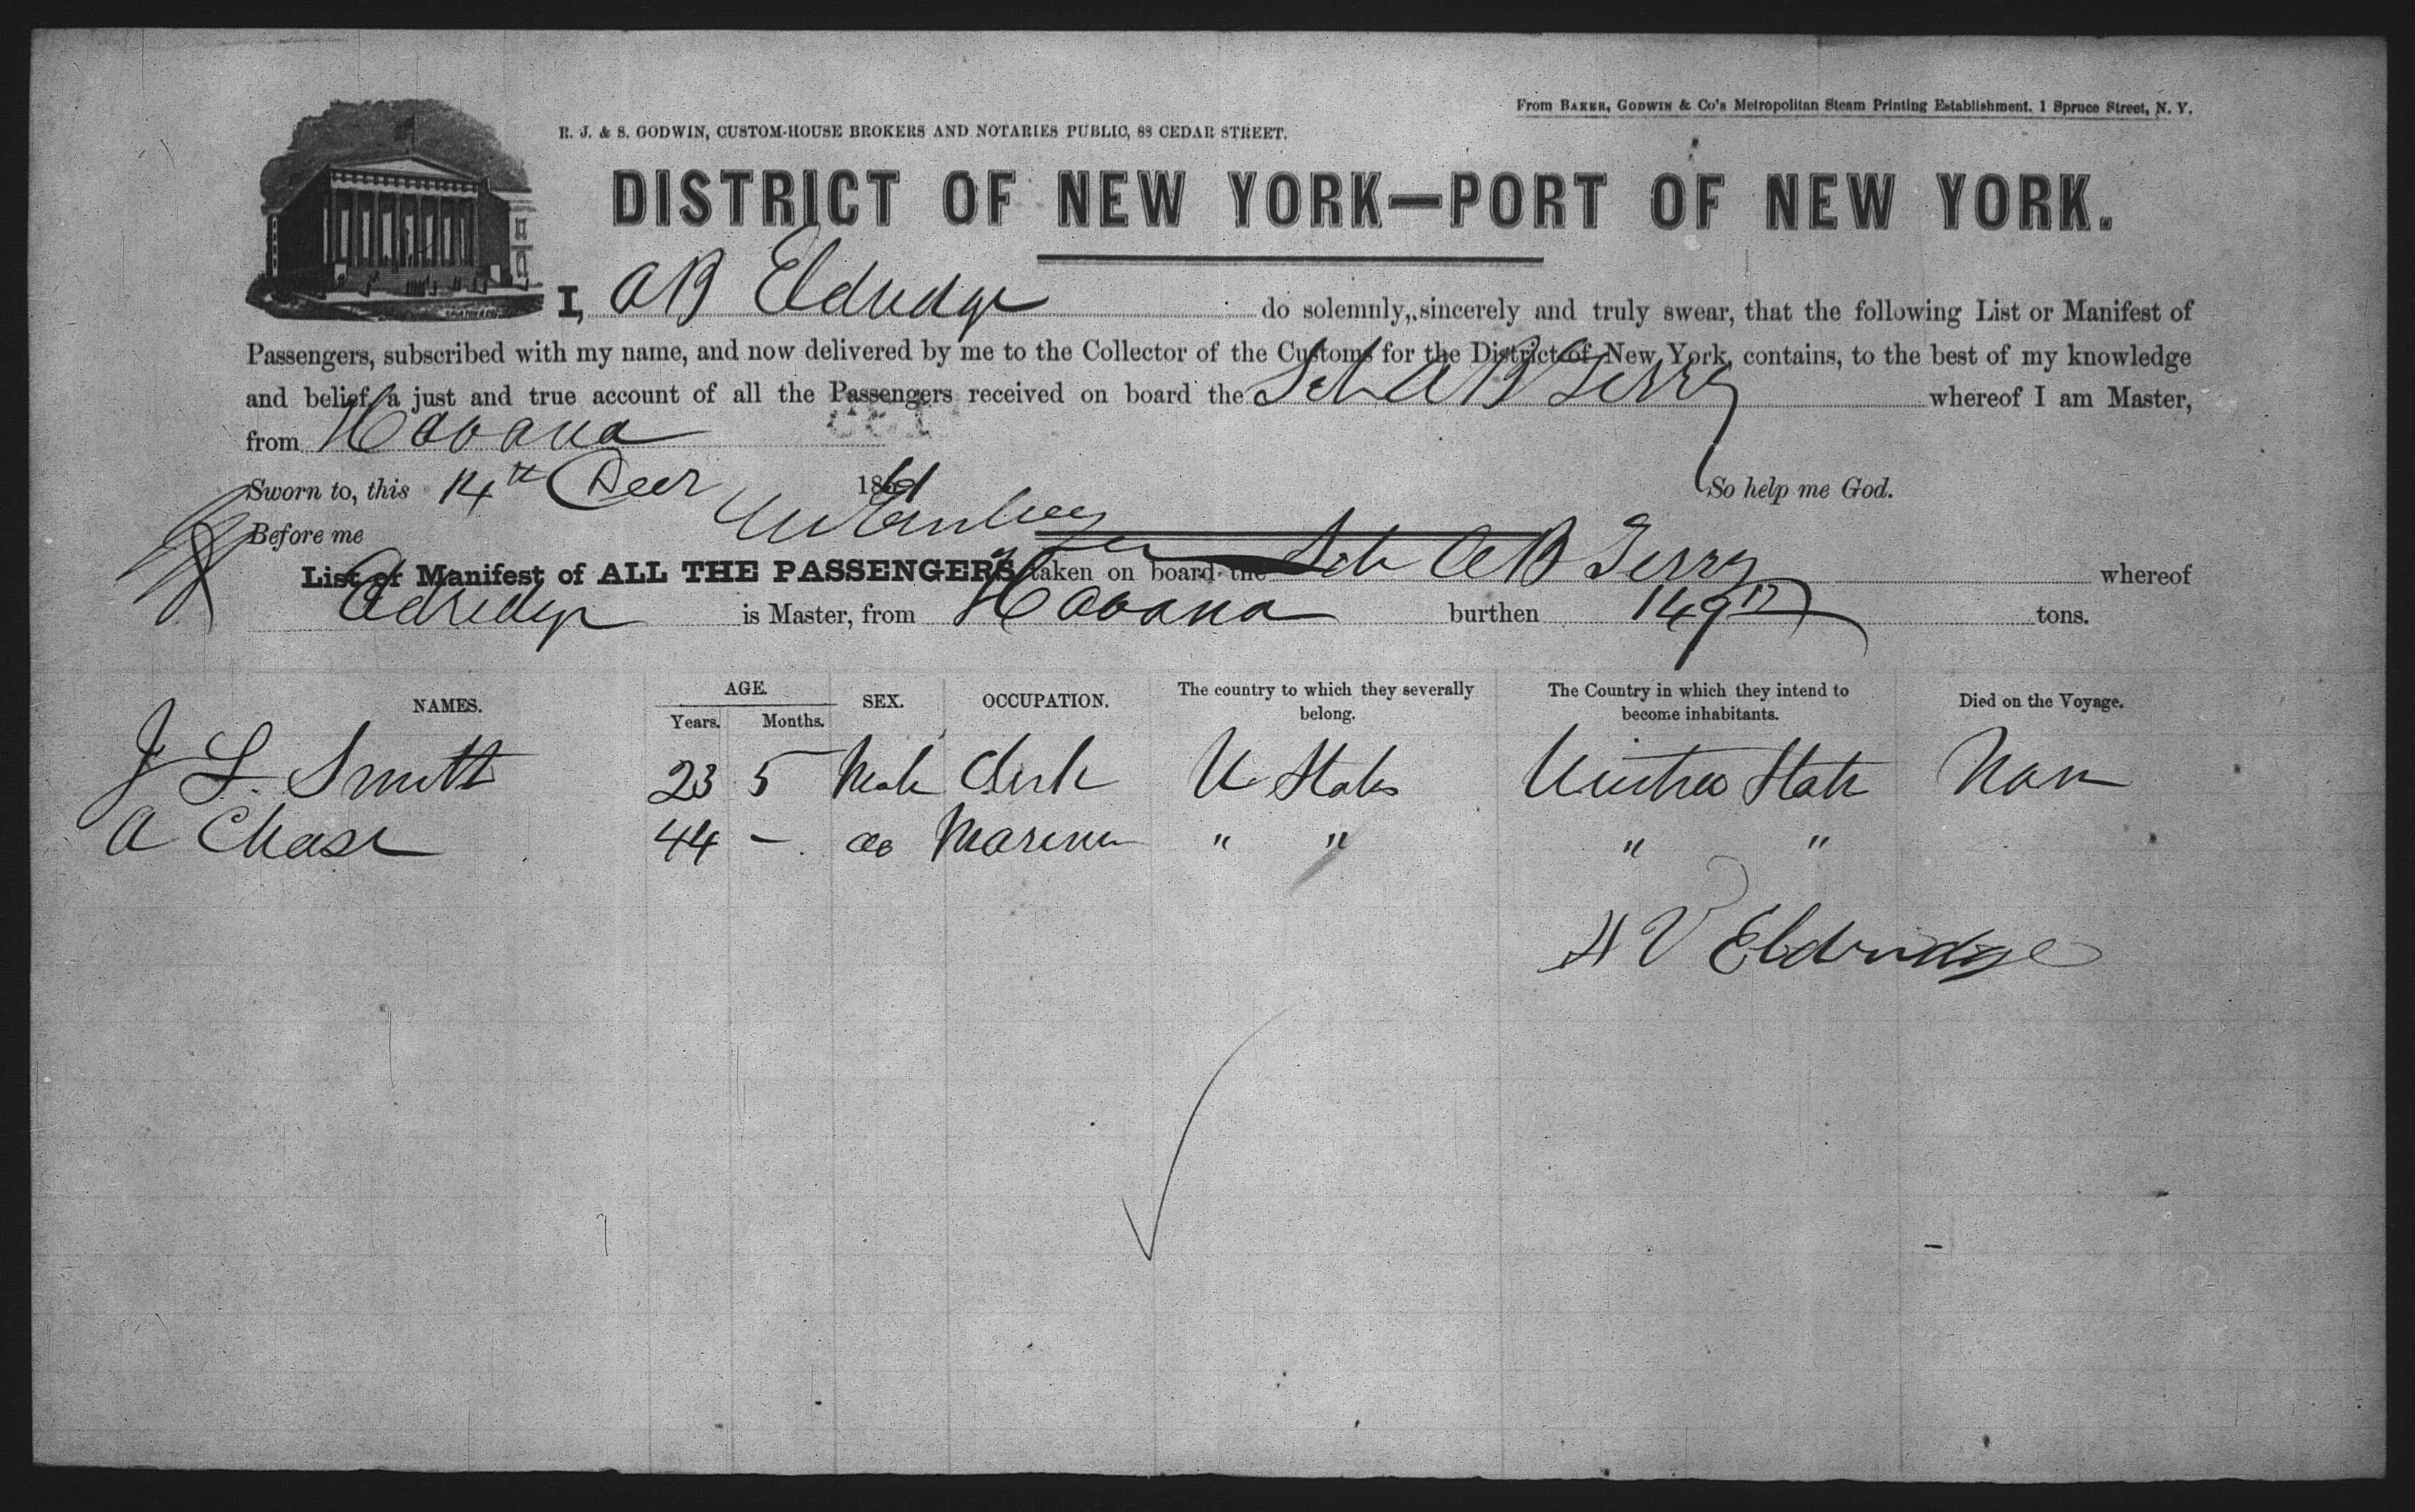 From BAKER, GODWIN & Co's Metropolitan Steam Printing Establishment, 1 Spruce Street, N. Y.
R. J. & S. GODWIN, CUSTOM-HOUSE BROKERS AND NOTARIES PUBLIC, 88 CEDAR STREET.
DISTRICT OF NEW YORK—PORT OF NEW YORK.
I, A B Eldredge do solemnly, sincerely and truly swear, that the following List or Manifest of
Passengers, subscribed with my name, and now delivered by me to the Collector of the Customs for the District of New York, contains, to the best of my knowledge
and belief, a just and true account of all the Passengers received on board the Sch A B Terry whereof I am Master,
from Havana
Sworn to, this 14th Decr 1861 So help me God.
Before me
List or Manifest of ALL THE PASSENGERS taken on board the Sch A B Terry whereof
Eldredge is Master, from Havana burthen 149 tons.
NAMES. AGE. Years. Months. SEX. OCCUPATION. The country to which they severally belong. The Country in which they intend to become inhabitants. Died on the Voyage.
J L. Smith 23 5 Male Clerk U States United State Non
A Chase 44 - do Mariner " " " "
H V Eldridge